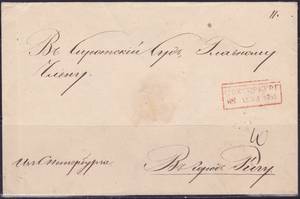 11.
Въ Сиротскій Судъ Главному
Члену
Изъ С.петербурга
Въ городъ Ригу